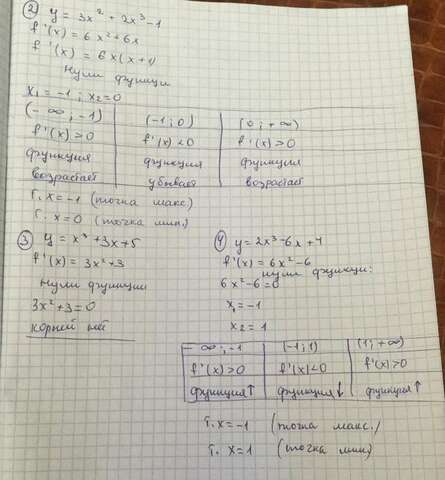 ② y = 3x² + 2x³ - 1
f'(x) = 6x² + 6x
f'(x) = 6x(x+1)
Нули функци
x₁ = -1 ; x₂ = 0
(-∞; -1) (-1; 0) (0; +∞)
f'(x) > 0 f'(x) < 0 f'(x) > 0
функция функция функция
возрастает убывает возрастает
т. x = -1 (точка макс)
т. x = 0 (точка мин.)
③ y = x³ + 3x + 5
f'(x) = 3x² + 3
Нули функции
3x² + 3 = 0
корней нет
④ y = 2x³ - 6x + 4
f'(x) = 6x² - 6
нули функци:
6x² - 6 = 0
x₁ = -1
x₂ = 1
-∞; -1 (-1; 1) (1; +∞)
f'(x) > 0 f'(x) < 0 f'(x) > 0
функция ↑ функция ↓ функция ↑
т. x = -1 (точка макс.)
т. x = 1 (точка мин)